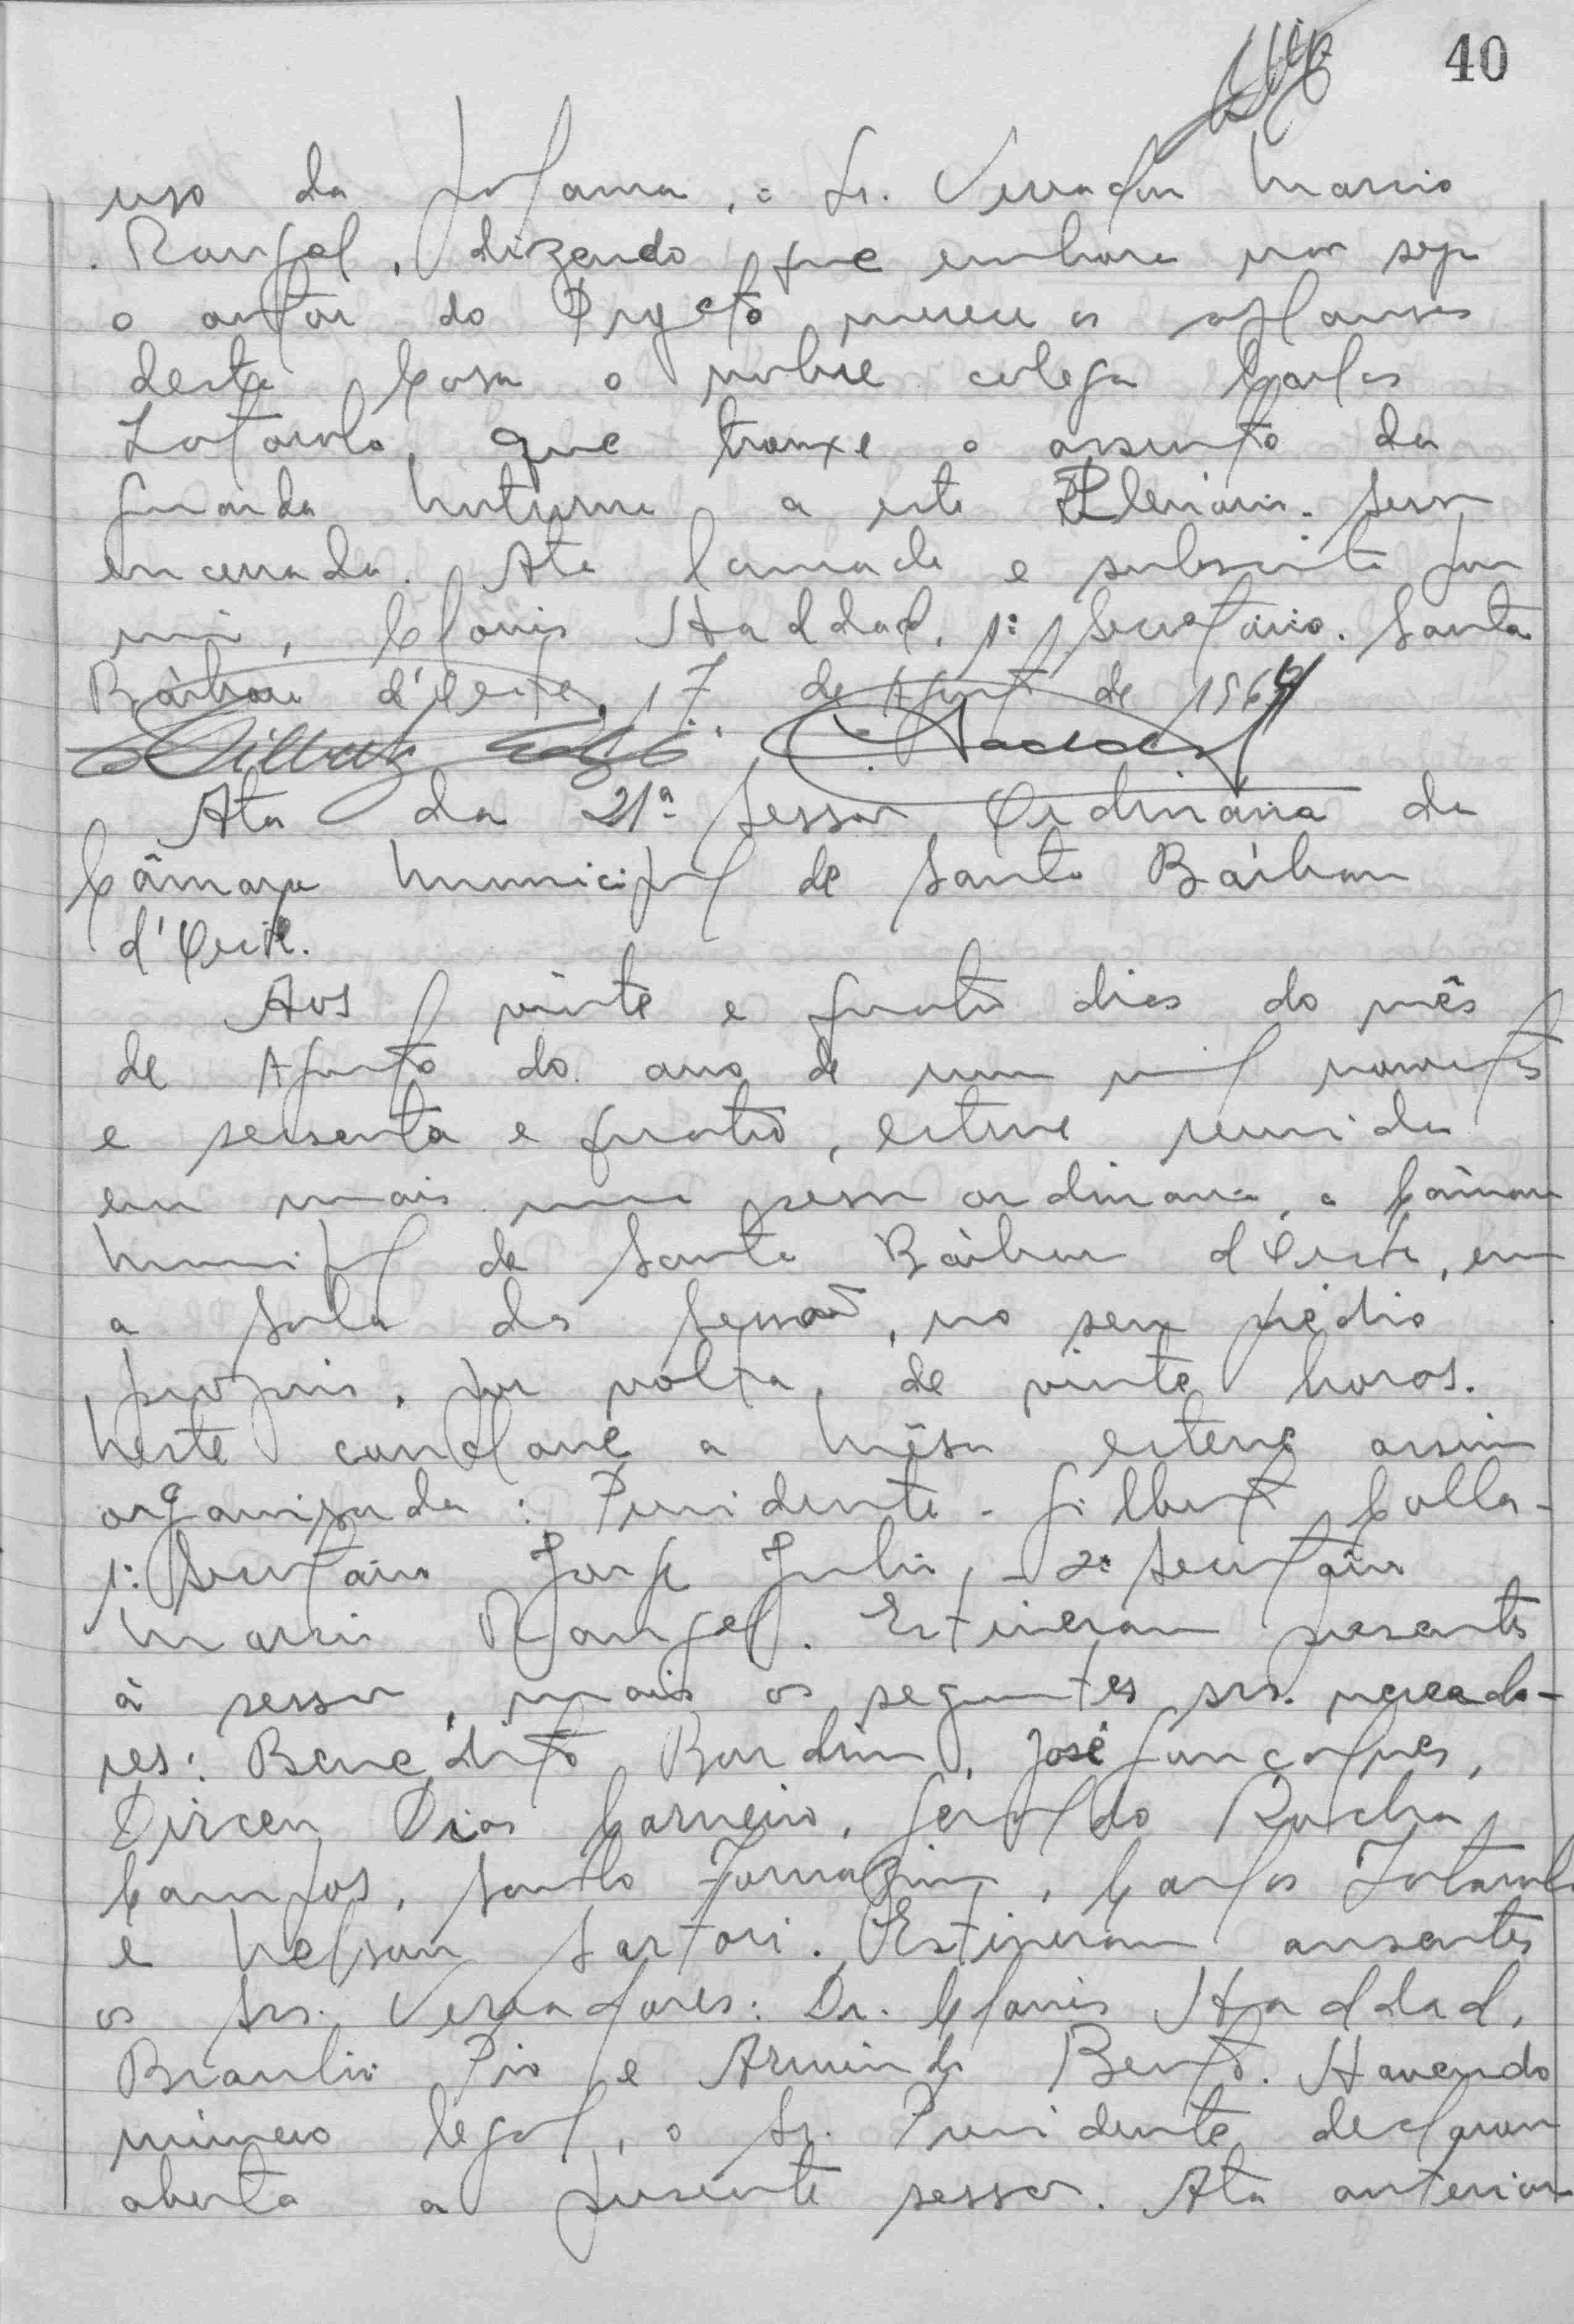 40
uso da palavra, o Sr. Vereador Marcio
Rangel, dizendo que embora não seja
o autor do Projeto merece os aplausos
desta Casa o nobre colega Carlos
que trouxe o assunto da
guarda Noturna a este Plenário. Sessão
encerrada. Ata lavrada e subscrita por
mim, Clóvis Haddad, 1º Secretário. Santa
Bárbara d'Oeste, 17 de Agosto de 1964
Ata da 21ª Sessão Ordinária da
Câmara Municipal de Santa Bárbara
d'Oeste.
Aos vinte e quatro dias do mês
de Agosto do ano de um mil novecentos
e sessenta e quatro, esteve reunida
em mais uma sessão ordinaria, a Câmara
Municipal de Santa Bárbara d'Oeste, em
a Sala da Sessão, no seu prédio
proprio, por volta de vinte horas.
Neste conclave a Mêsa esteve assim
organisada: Presidente - Gilberto Colla -
1º Secretário Jorge Julio, - 2º Secretário
Marcio Rangel. Estiveram presentes
à sessão, mais os seguintes srs. vereado-
res: Benedito Bordim, José Gonçalves,
Dirceu Dias Carneiro, Geraldo Rocha
Campos, Santo Tomazim, Carlos
e Nelson Sartori. Estiveram ausentes
os Srs. Vereadores: Dr. Clovis Haddad,
Braulio Pio e Armindo Bento. Havendo
número legal, o Sr. Presidente declarou
aberta a presente sessão. Ata anterior